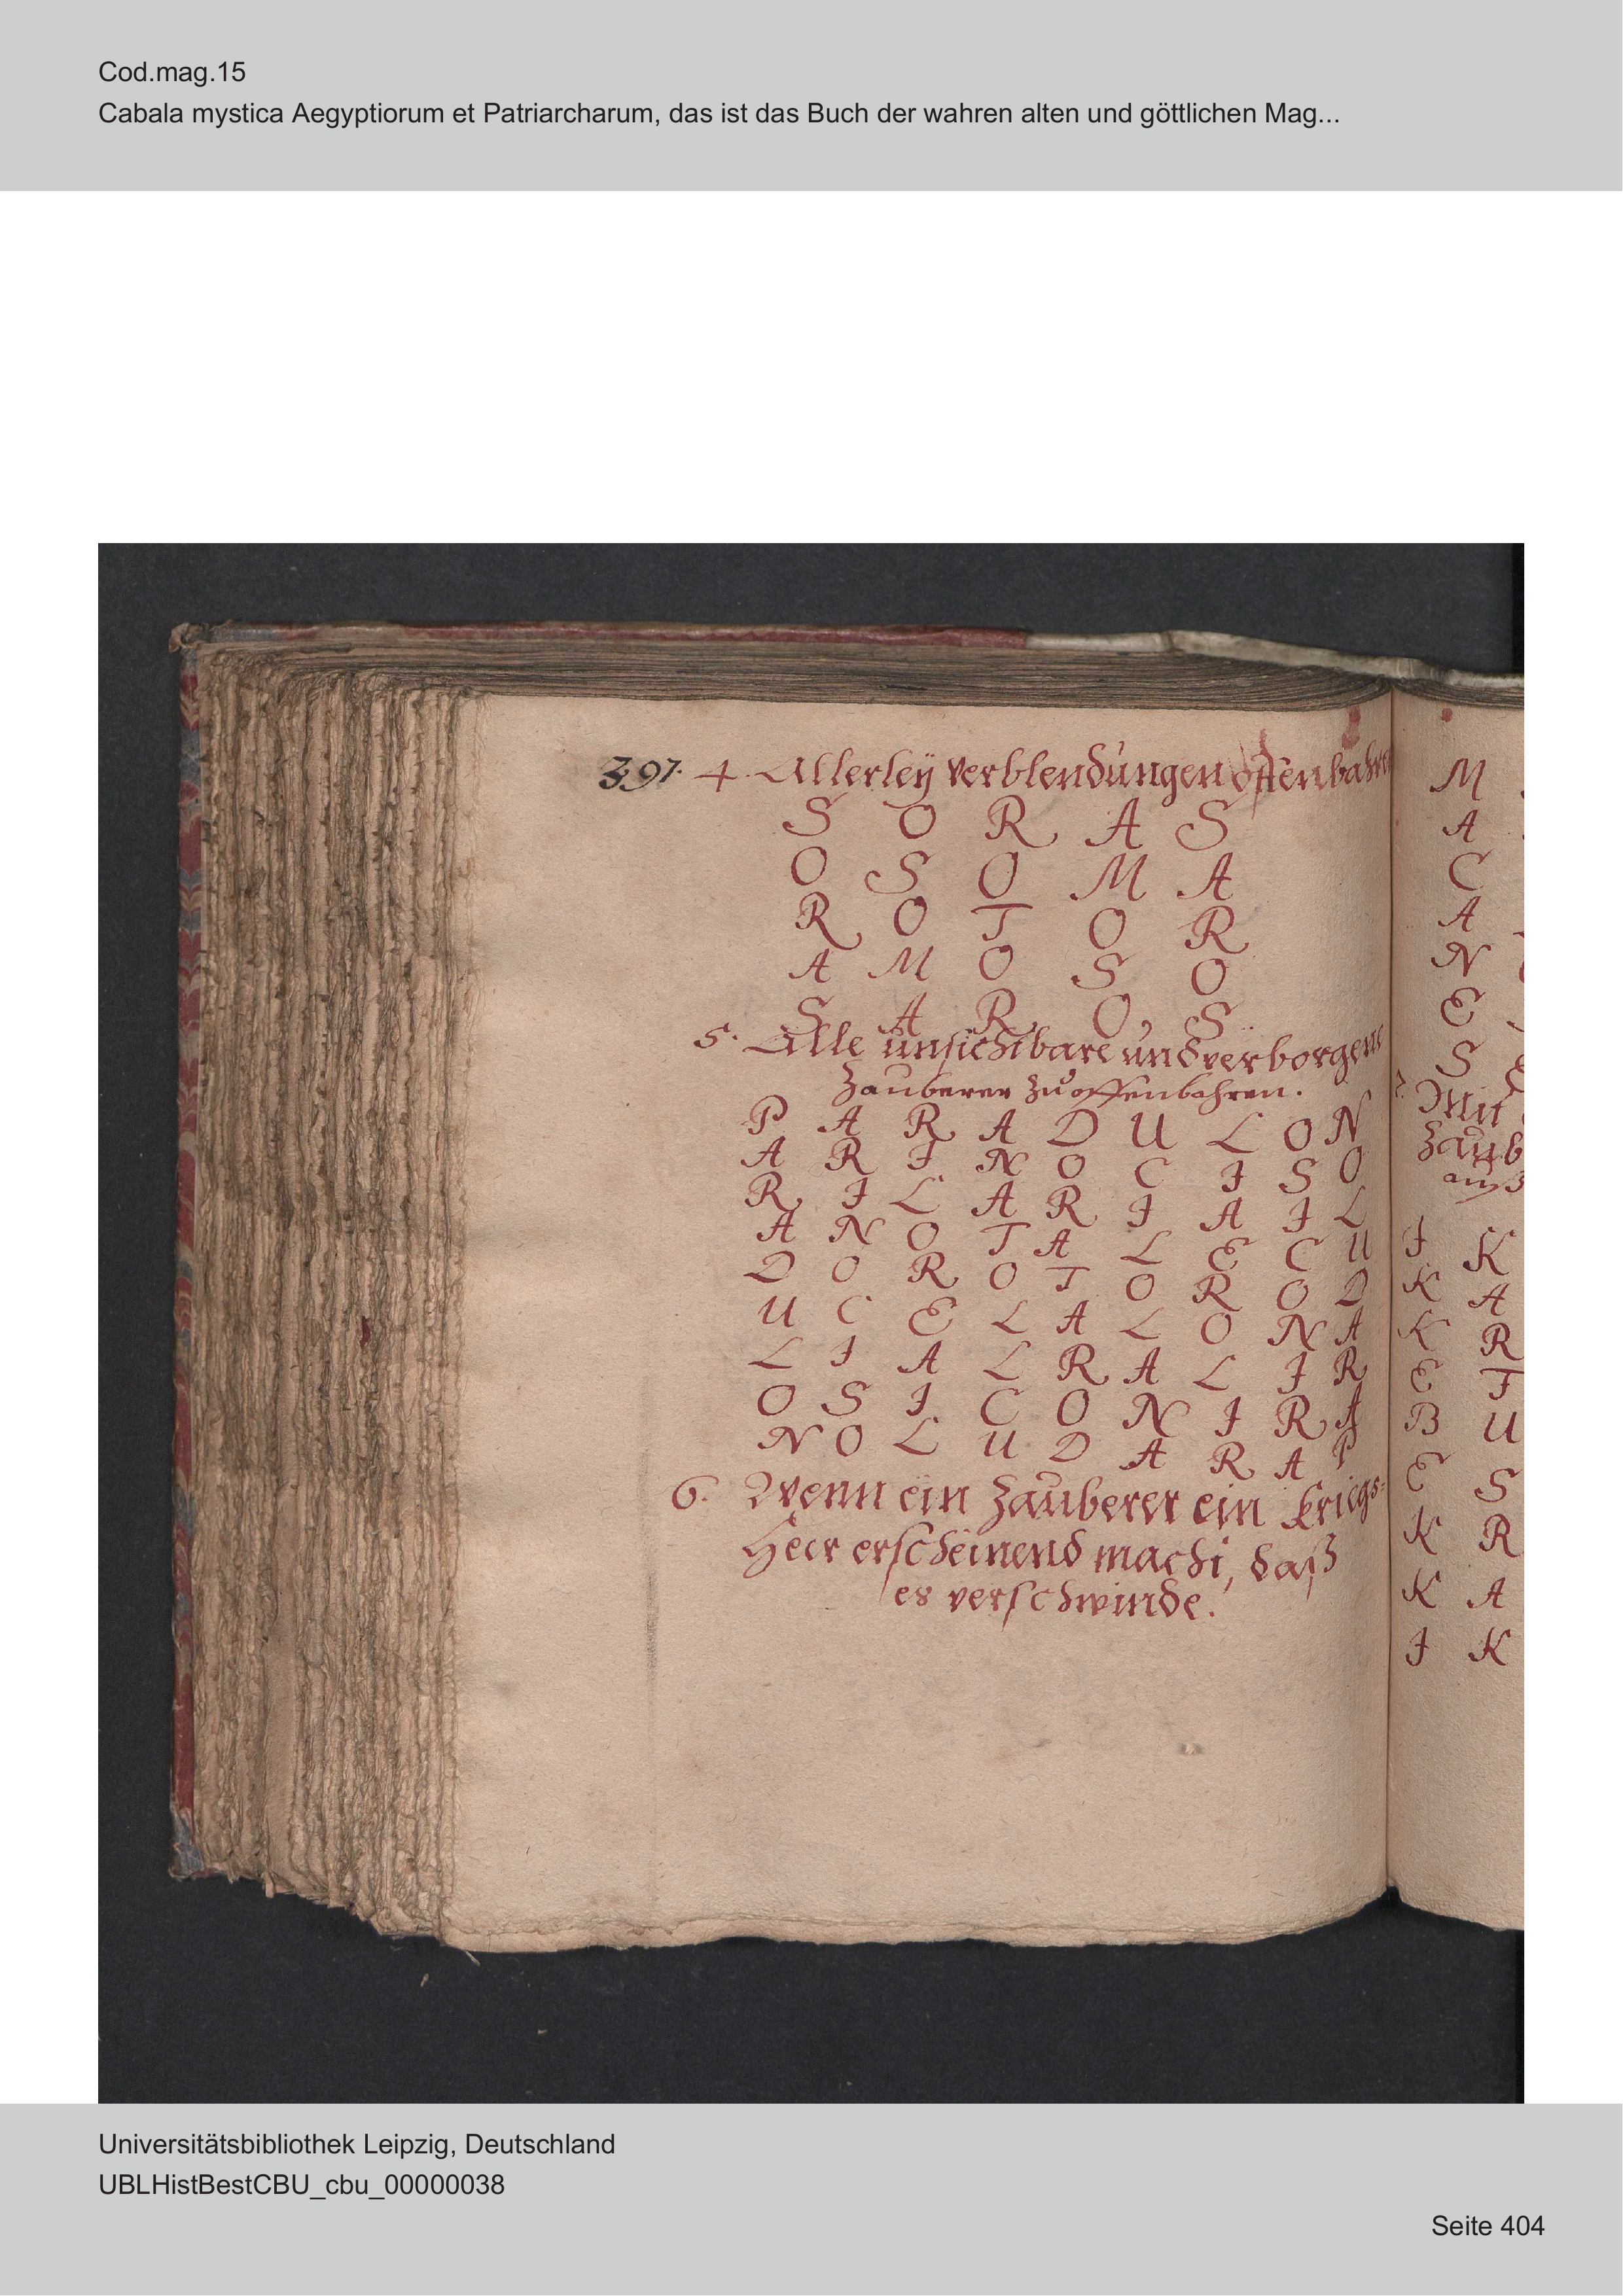 Cod.mag.15
Cabala mystica Aegyptiorum et Patriarcharum, das ist das Buch der wahren alten und göttlichen Mag...
397. 4. Allerleÿ verblendungen offenbahren
S O R A S
O S O M A
R O T O R
A M O S O
S A R O S
5. Alle unsichtbare und verborgene
Zauberer zu offenbahren.
P A R A D U L O N
A R I N O C I S O
R I L A R I A I L
A N O T A L E C U
D O R O T O R O D
U C E L A L O N A
L I A L R A L I R
O S I C O N I R A
N O L U D A R A P
6. Wenn ein Zauberer ein Kriegs-
Heer erscheinend macht, daß
es verschwinde.
M
A
C
A
N
E
S
Mit
Zaub
auß
I K
K A
K R
E T
B U
E S
K R
K A
I K
Universitätsbibliothek Leipzig, Deutschland
UBLHistBestCBU_cbu_00000038
Seite 404